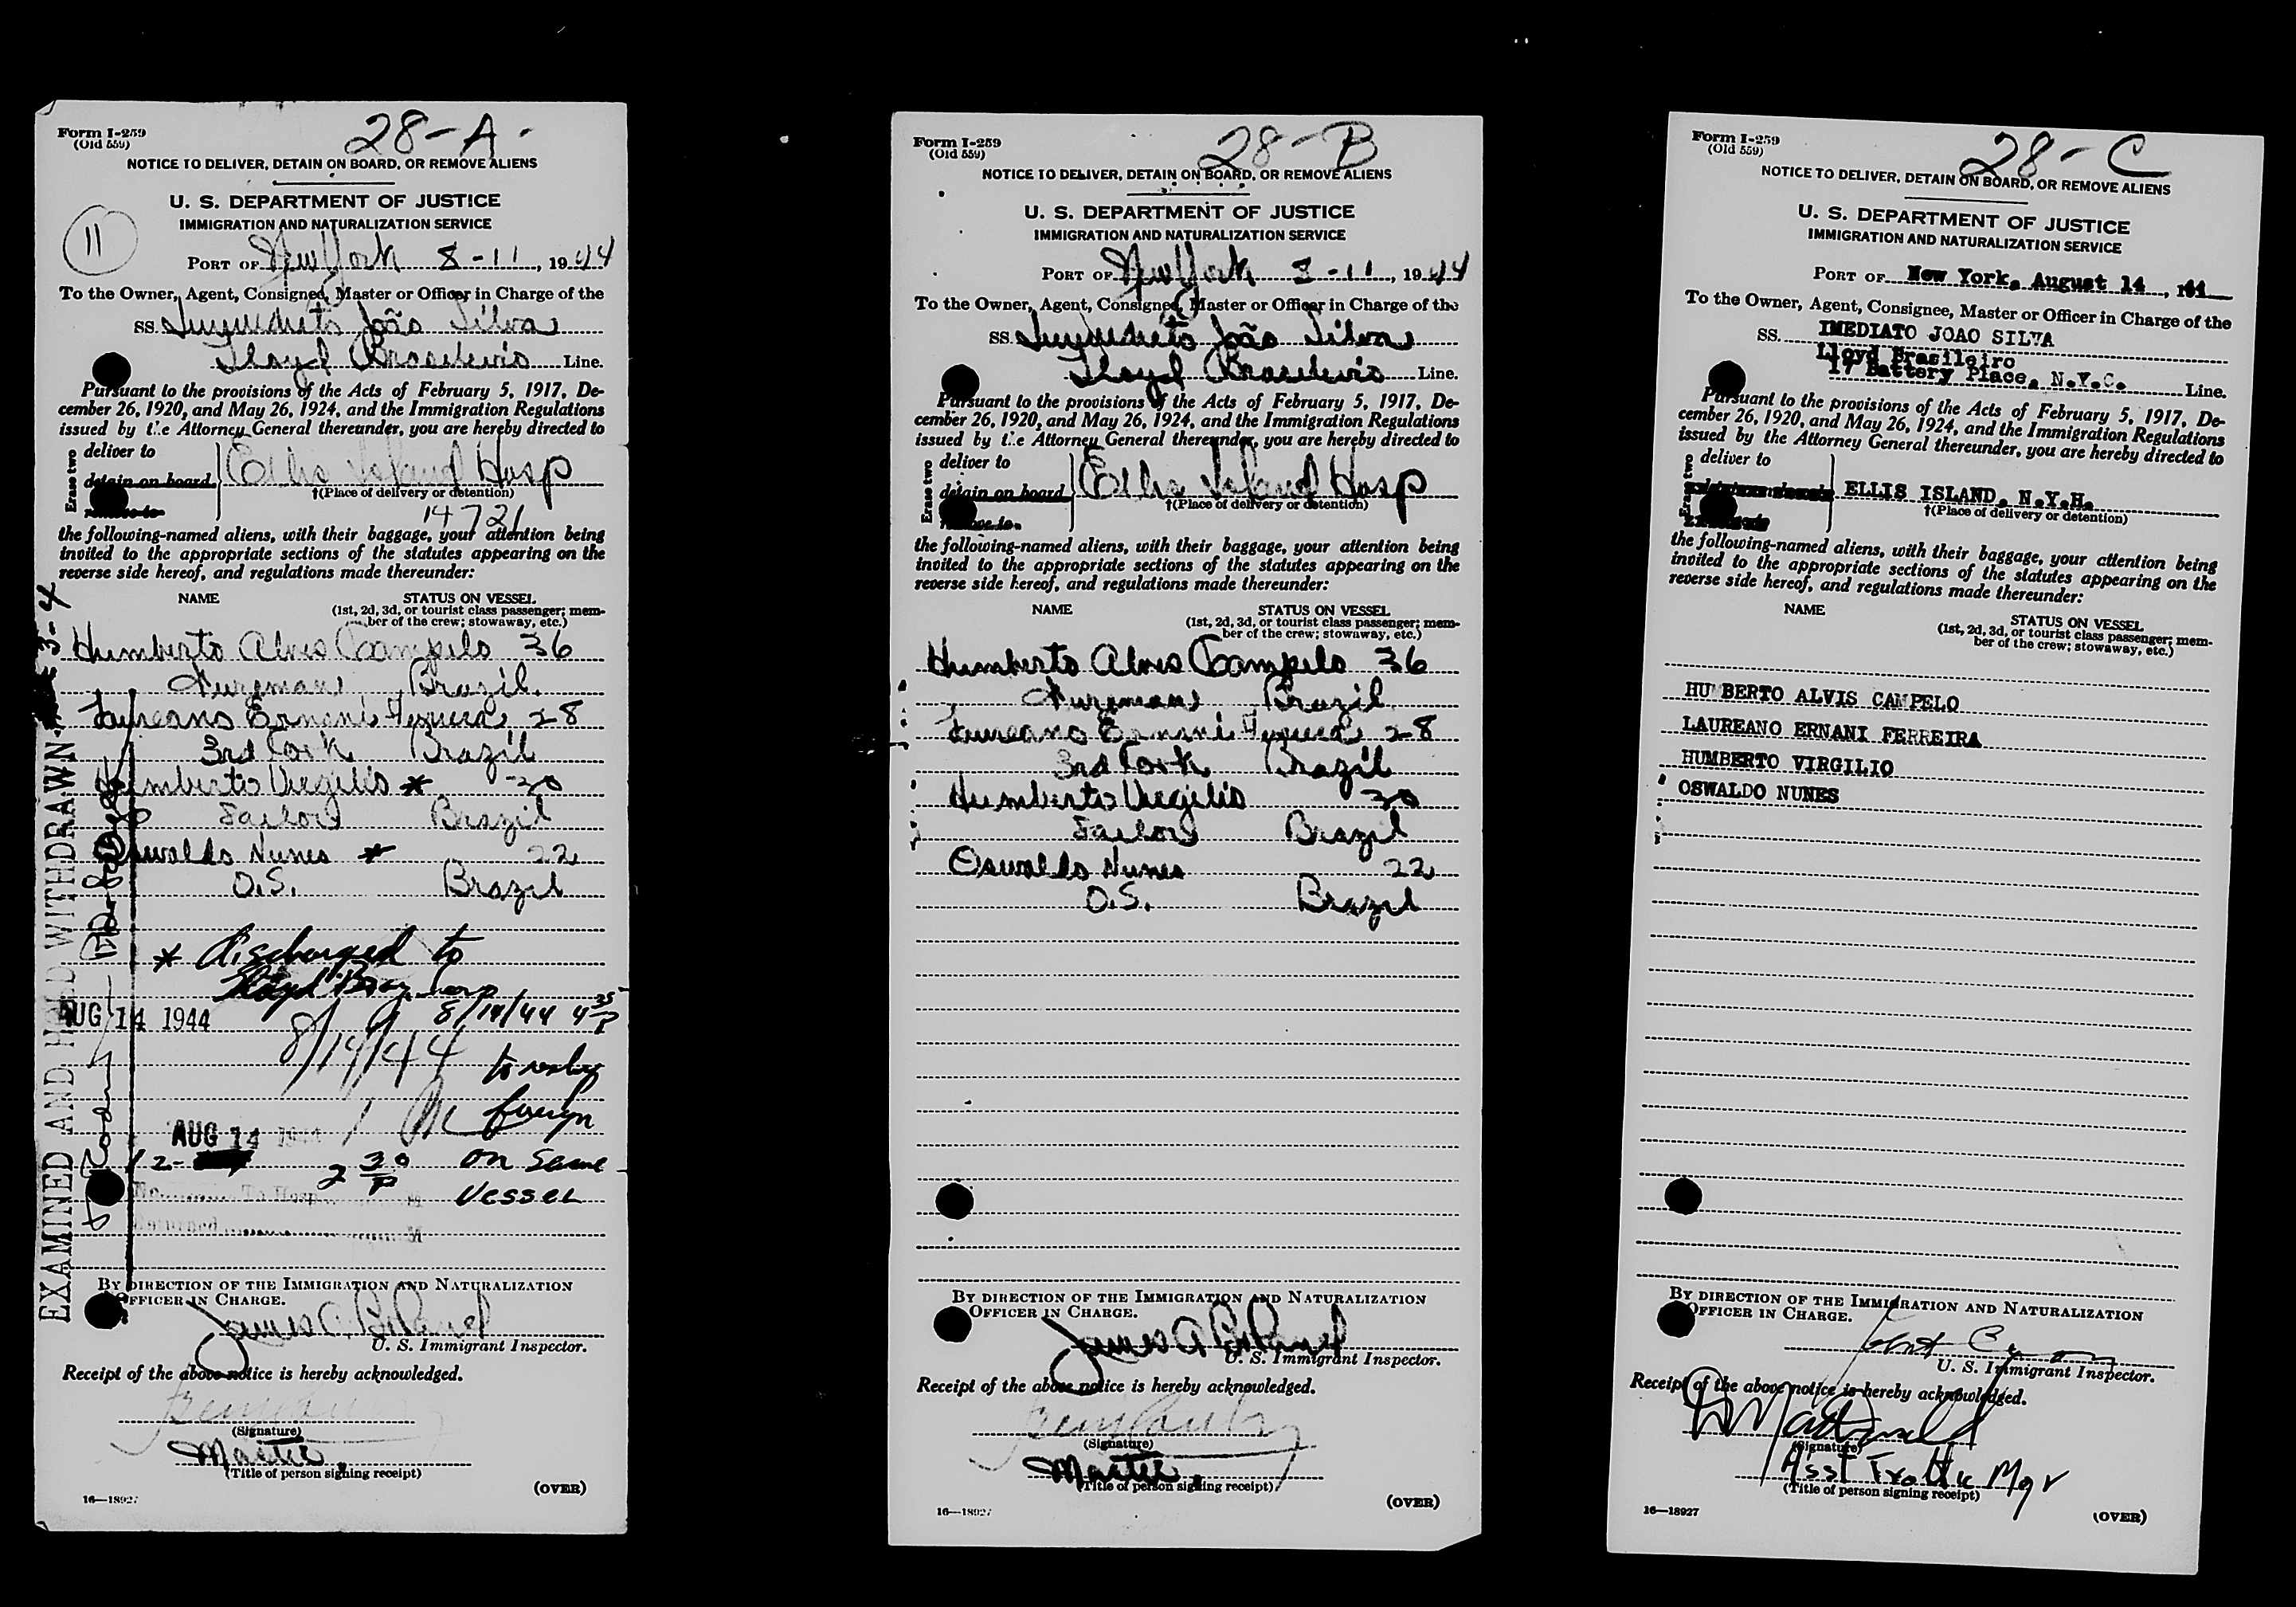 28-A-
Form I-259
(Old 559)
NOTICE TO DELIVER, DETAIN ON BOARD, OR REMOVE ALIENS
U. S. DEPARTMENT OF JUSTICE
IMMIGRATION AND NATURALIZATION SERVICE
11
PORT OF New York 8-11, 1944
To the Owner, Agent, Consignee, Master or Officer in Charge of the
SS. João Silva
Lloyd Brasileiro Line.
Pursuant to the provisions of the Acts of February 5, 1917, De-
cember 26, 1920, and May 26, 1924, and the Immigration Regulations
issued by the Attorney General thereunder, you are hereby directed to
Erase two
deliver to
detain on board
remove to
Ellis Island Hosp
†(Place of delivery or detention)
14721
the following-named aliens, with their baggage, your attention being
invited to the appropriate sections of the statutes appearing on the
reverse side hereof, and regulations made thereunder:
NAME STATUS ON VESSEL
(1st, 2d, 3d, or tourist class passenger; mem-
ber of the crew; stowaway, etc.)
Humberto Alves Campelo 36
Fireman Brazil
Laureano Ernani 28
3rd Cook Brazil
Humberto Virgilio * 30
Sailor Brazil
Oswaldo Nunes * 22
O.S. Brazil
* discharged to
Lloyd Braz.
8/14/44 4 35 P
AUG 14 1944
8/14/44
to reship
foreign
AUG 14 1944
2 30 P on same
vessel
EXAMINED AND HOLD WITHDRAWN
BY DIRECTION OF THE IMMIGRATION AND NATURALIZATION
OFFICER IN CHARGE.
James A.
U. S. Immigrant Inspector.
Receipt of the above notice is hereby acknowledged.
(Signature)
Master
(Title of person signing receipt)
(OVER)
16—18927
28-B
Form I-259
(Old 559)
NOTICE TO DELIVER, DETAIN ON BOARD, OR REMOVE ALIENS
U. S. DEPARTMENT OF JUSTICE
IMMIGRATION AND NATURALIZATION SERVICE
PORT OF New York 8-11, 1944
To the Owner, Agent, Consignee, Master or Officer in Charge of the
SS. João Silva
Lloyd Brasileiro Line.
Pursuant to the provisions of the Acts of February 5, 1917, De-
cember 26, 1920, and May 26, 1924, and the Immigration Regulations
issued by the Attorney General thereunder, you are hereby directed to
Erase two
deliver to
detain on board
remove to
Ellis Island Hosp
†(Place of delivery or detention)
the following-named aliens, with their baggage, your attention being
invited to the appropriate sections of the statutes appearing on the
reverse side hereof, and regulations made thereunder:
NAME STATUS ON VESSEL
(1st, 2d, 3d, or tourist class passenger; mem-
ber of the crew; stowaway, etc.)
Humberto Alves Campelo 36
Fireman Brazil
Laureano Ernani 28
3rd Cook Brazil
Humberto Virgilio 30
Sailor Brazil
Oswaldo Nunes 22
O.S. Brazil
BY DIRECTION OF THE IMMIGRATION AND NATURALIZATION
OFFICER IN CHARGE.
James A.
U. S. Immigrant Inspector.
Receipt of the above notice is hereby acknowledged.
(Signature)
Master
(Title of person signing receipt)
(OVER)
16—18927
28-C
Form I-259
(Old 559)
NOTICE TO DELIVER, DETAIN ON BOARD, OR REMOVE ALIENS
U. S. DEPARTMENT OF JUSTICE
IMMIGRATION AND NATURALIZATION SERVICE
PORT OF New York, August 14, 1944
To the Owner, Agent, Consignee, Master or Officer in Charge of the
SS. IMEDIATO JOAO SILVA
Lloyd Brasileiro
17 Battery Place, N.Y.C. Line.
Pursuant to the provisions of the Acts of February 5, 1917, De-
cember 26, 1920, and May 26, 1924, and the Immigration Regulations
issued by the Attorney General thereunder, you are hereby directed to
Erase two
deliver to
ELLIS ISLAND, N.Y.H.
†(Place of delivery or detention)
the following-named aliens, with their baggage, your attention being
invited to the appropriate sections of the statutes appearing on the
reverse side hereof, and regulations made thereunder:
NAME STATUS ON VESSEL
(1st, 2d, 3d, or tourist class passenger; mem-
ber of the crew; stowaway, etc.)
HUMBERTO ALVIS CAMPELO
LAUREANO ERNANI FERREIRA
HUMBERTO VIRGILIO
OSWALDO NUNES
BY DIRECTION OF THE IMMIGRATION AND NATURALIZATION
OFFICER IN CHARGE.
U. S. Immigrant Inspector.
Receipt of the above notice is hereby acknowledged.
MacDonald
(Signature)
Asst Traffic Mgr
(Title of person signing receipt)
16—18927
(OVER)